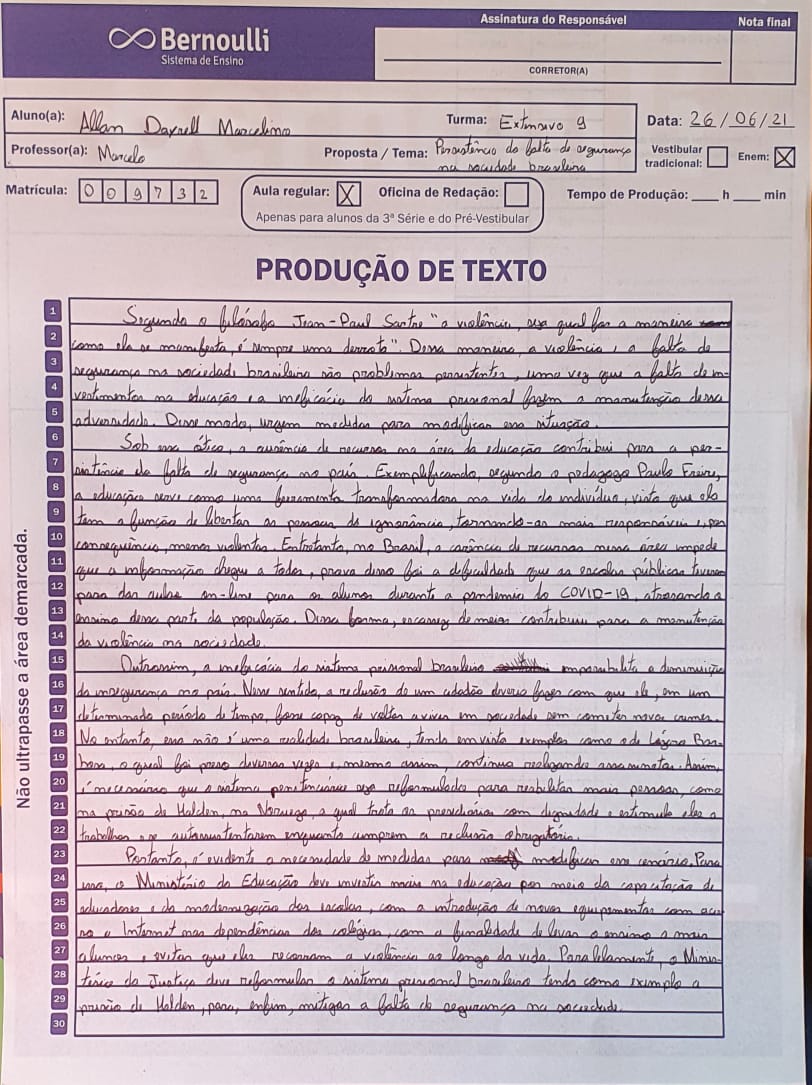 Bernoulli
Sistema de Ensino
Assinatura do Responsável
Nota final
CORRETOR(A)
Aluno(a): Allan Dayrell Marcelino
Turma: Extensivo 9
Data: 26/06/21
Professor(a): Marcelo
Proposta / Tema: Persistência da falta de segurança
na sociedade brasileira
Vestibular tradicional:
Enem: X
Matrícula: 0 0 9 7 3 2
Aula regular: X Oficina de Redação:
Apenas para alunos da 3ª Série e do Pré-Vestibular
Tempo de Produção: ____ h ____ min
PRODUÇÃO DE TEXTO
Não ultrapasse a área demarcada.
1 Segundo o filósofo Jean-Paul Sartre "a violência, seja qual for a maneira
2 como ela se manifesta, é sempre uma derrota". Dessa maneira, a violência e a falta de
3 segurança na sociedade brasileira são problemas persistentes, uma vez que a falta de in-
4 vestimentos na educação e a ineficácia do sistema prisional fazem a manutenção dessa
5 adversidade. Desse modo, urgem medidas para modificar essa situação.
6 Sob essa ótica, a ausência de recursos na área da educação contribui para a per-
7 sistência da falta de segurança no país. Exemplificando, segundo o pedagogo Paulo Freire,
8 a educação serve como uma ferramenta transformadora na vida do indivíduo, visto que ela
9 tem a função de libertar as pessoas da ignorância, tornando-as mais responsáveis e, por
10 consequência, menos violentas. Entretanto, no Brasil, a carência de recursos nessa área impede
11 que a informação chegue a todos, prova disso foi a dificuldade que as escolas públicas tiveram
12 para dar aulas on-line para os alunos durante a pandemia do COVID-19, atrasando o
13 ensino dessa parte da população. Dessa forma, escassez de meios contribuem para a manutenção
14 da violência na sociedade.
15 Outrossim, a ineficácia do sistema prisional brasileiro impossibilita a diminuição
16 da insegurança no país. Nesse sentido, a reclusão de um cidadão deveria fazer com que ele, em um
17 determinado período de tempo, fosse capaz de voltar a viver em sociedade sem cometer novos crimes.
18 No entanto, essa não é uma realidade brasileira, tendo em vista exemplos como o de Lázaro Bar-
19 bosa, o qual foi preso diversas vezes e, mesmo assim, continua realizando assassinatos. Assim,
20 é necessário que o sistema penitenciário seja reformulado para reabilitar mais pessoas, como
21 na prisão de Halden, na Noruega, a qual trata os presidiários com dignidade e estimula eles a
22 trabalhar e se autossustentarem enquanto cumprem a reclusão obrigatória.
23 Portanto, é evidente a necessidade de medidas para modificar esse cenário. Para
24 isso, o Ministério da Educação deve investir mais na educação por meio da capacitação de
25 educadores e da modernização das escolas, com a introdução de novos equipamentos com aces-
26 so a Internet nas dependências dos colégios, com a finalidade de levar o ensino a mais
27 alunos e evitar que eles recorram a violência ao longo da vida. Paralelamente, o Minis-
28 tério da Justiça deve reformular o sistema prisional brasileiro tendo como exemplo a
29 prisão de Halden, para, enfim, mitigar a falta de segurança na sociedade.
30